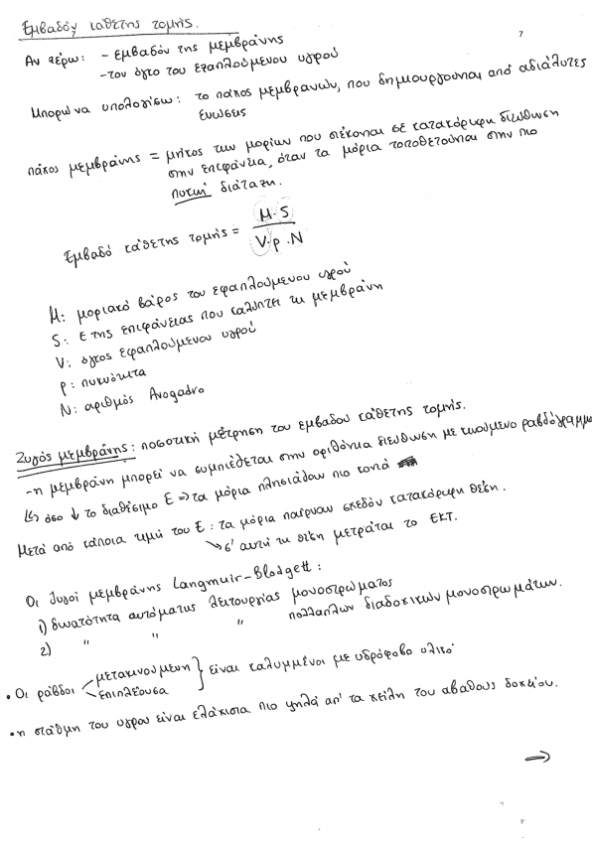 Εμβαδόν κάθετης τομής.
Αν ξέρω: - εμβαδόν της μεμβράνης
- τον όγκο του εφαπλούμενου υγρού
Μπορώ να υπολογίσω: το πάχος μεμβρανών, που δημιουργούνται από αδιάλυτες
ενώσεις
πάχος μεμβράνης = μήκος των μορίων που στέκονται σε κατακόρυφη διεύθυνση
στην επιφάνεια, όταν τα μόρια τοποθετούνται στην πιο
πυκνή διάταξη.
Εμβαδό κάθετης τομής = M.S / V.ρ.N
M: μοριακό βάρος του εφαπλούμενου υγρού
S: Ε της επιφάνειας που καλύπτει τη μεμβράνη
V: όγκος εφαπλούμενου υγρού
ρ: πυκνότητα
N: αριθμός Avogadro
Ζυγός μεμβράνης: ποσοτική μέτρηση του εμβαδού κάθετης τομής.
- η μεμβράνη μπορεί να συμπιέθεται στην οριζόντια διεύθυνση με κινούμενο ραβδόγραμμο
όσο ↓ το διαθέσιμο Ε => τα μόρια πλησιάζουν πιο κοντά
Μετά από κάποια τιμή του Ε: τα μόρια παίρνουν σχεδόν κατακόρυφη θέση.
↘ σ' αυτή τη θέση μετράται το ΕΚΤ.
Οι ζυγοί μεμβράνης Langmuir-Blodgett:
1) δυνατότητα αυτόματης λειτουργίας μονοστρώματος
2) " " " πολλαπλών διαδοχικών μονοστρωμάτων.
• Οι ράβδοι < μετακινούμενη / επιπλέουσα } είναι καλυμμένοι με υδρόφοβο υλικό
• η στάθμη του υγρού είναι ελάχιστα πιο ψηλά απ' τα χείλη του αβαθούς δοχείου.
→